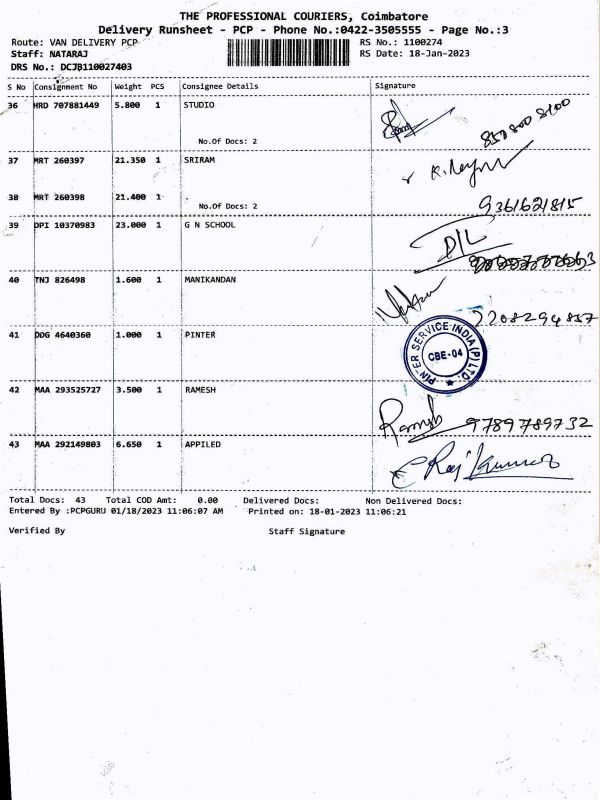 THE PROFESSIONAL COURIERS, Coimbatore
Delivery Runsheet - PCP - Phone No.:0422-3505555 - Page No.:3
Route: VAN DELIVERY PCP RS No.: 1100274
Staff: NATARAJ RS Date: 18-Jan-2023
DRS No.: DCJB110027403
S No Consignment No Weight PCS Consignee Details Signature
36 HRD 707881449 5.800 1 STUDIO
No.Of Docs: 2
37 MRT 260397 21.350 1 SRIRAM
38 MRT 260398 21.400 1
No.Of Docs: 2 9361621815
39 DPI 10370983 23.000 1 G N SCHOOL
40 TNJ 826498 1.600 1 MANIKANDAN
41 DDG 4640360 1.000 1 PINTER
SERVICE INDIA (P) LTD.
CBE-04
42 MAA 293525727 3.500 1 RAMESH
Ramesh 9789789732
43 MAA 292149803 6.650 1 APPILED
Raj Kumar
Total Docs: 43 Total COD Amt: 0.00 Delivered Docs: Non Delivered Docs:
Entered By :PCPGURU 01/18/2023 11:06:07 AM Printed on: 18-01-2023 11:06:21
Verified By Staff Signature